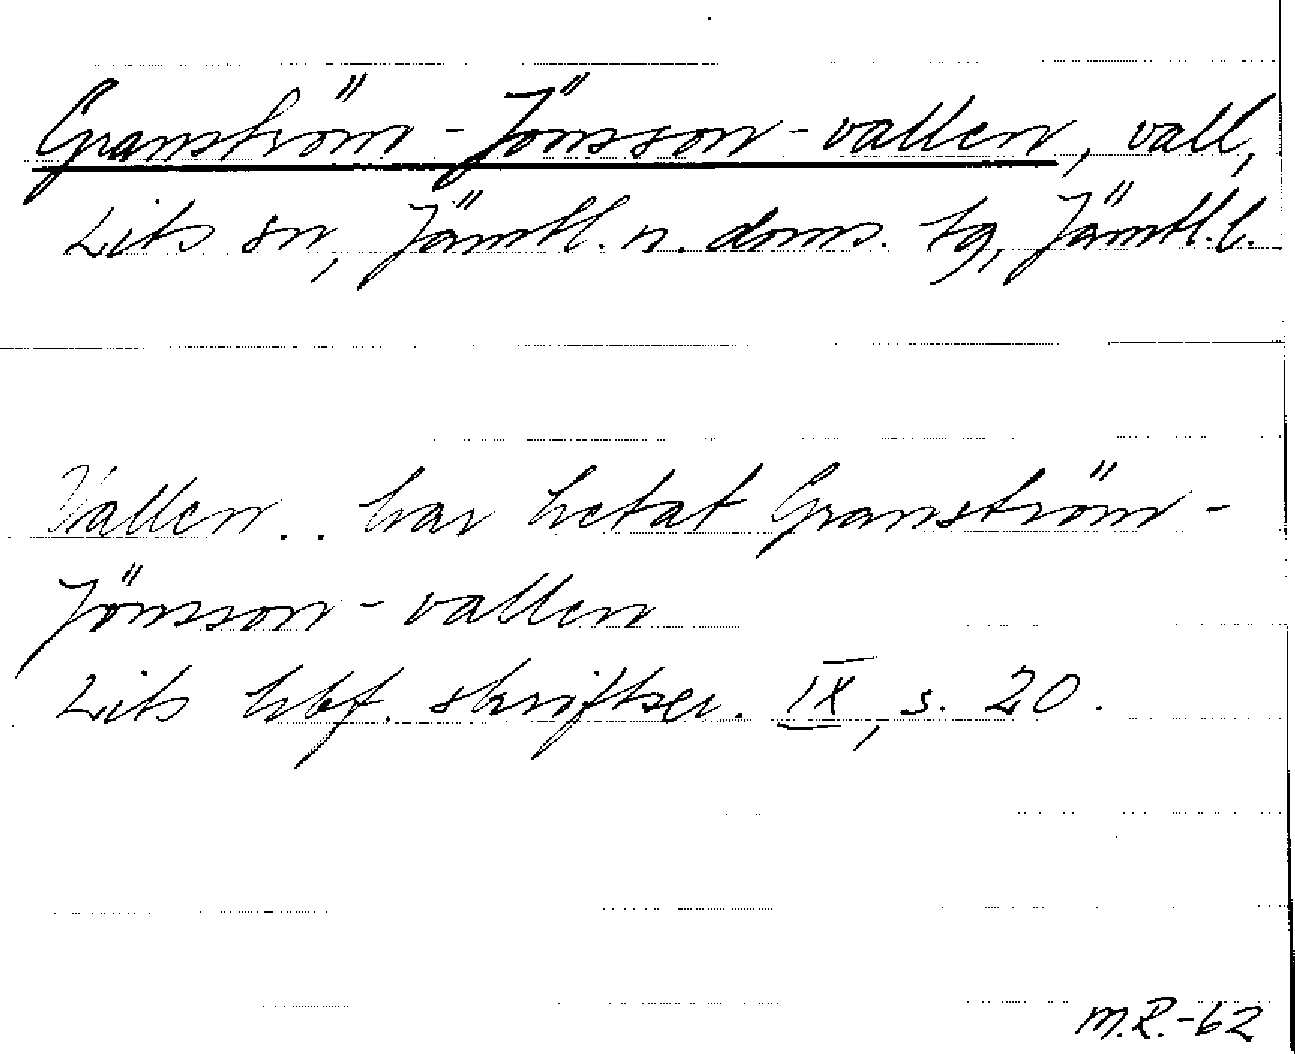 Granström-Jönsson-vallen, vall,
Lits sn, Jämtl. n. doms. tg, Jämtl.l.
Vallen.. har hetat Granström-
Jönsson-vallen
Lits hbf. skriftser. IX, s. 20.
M.R.-62